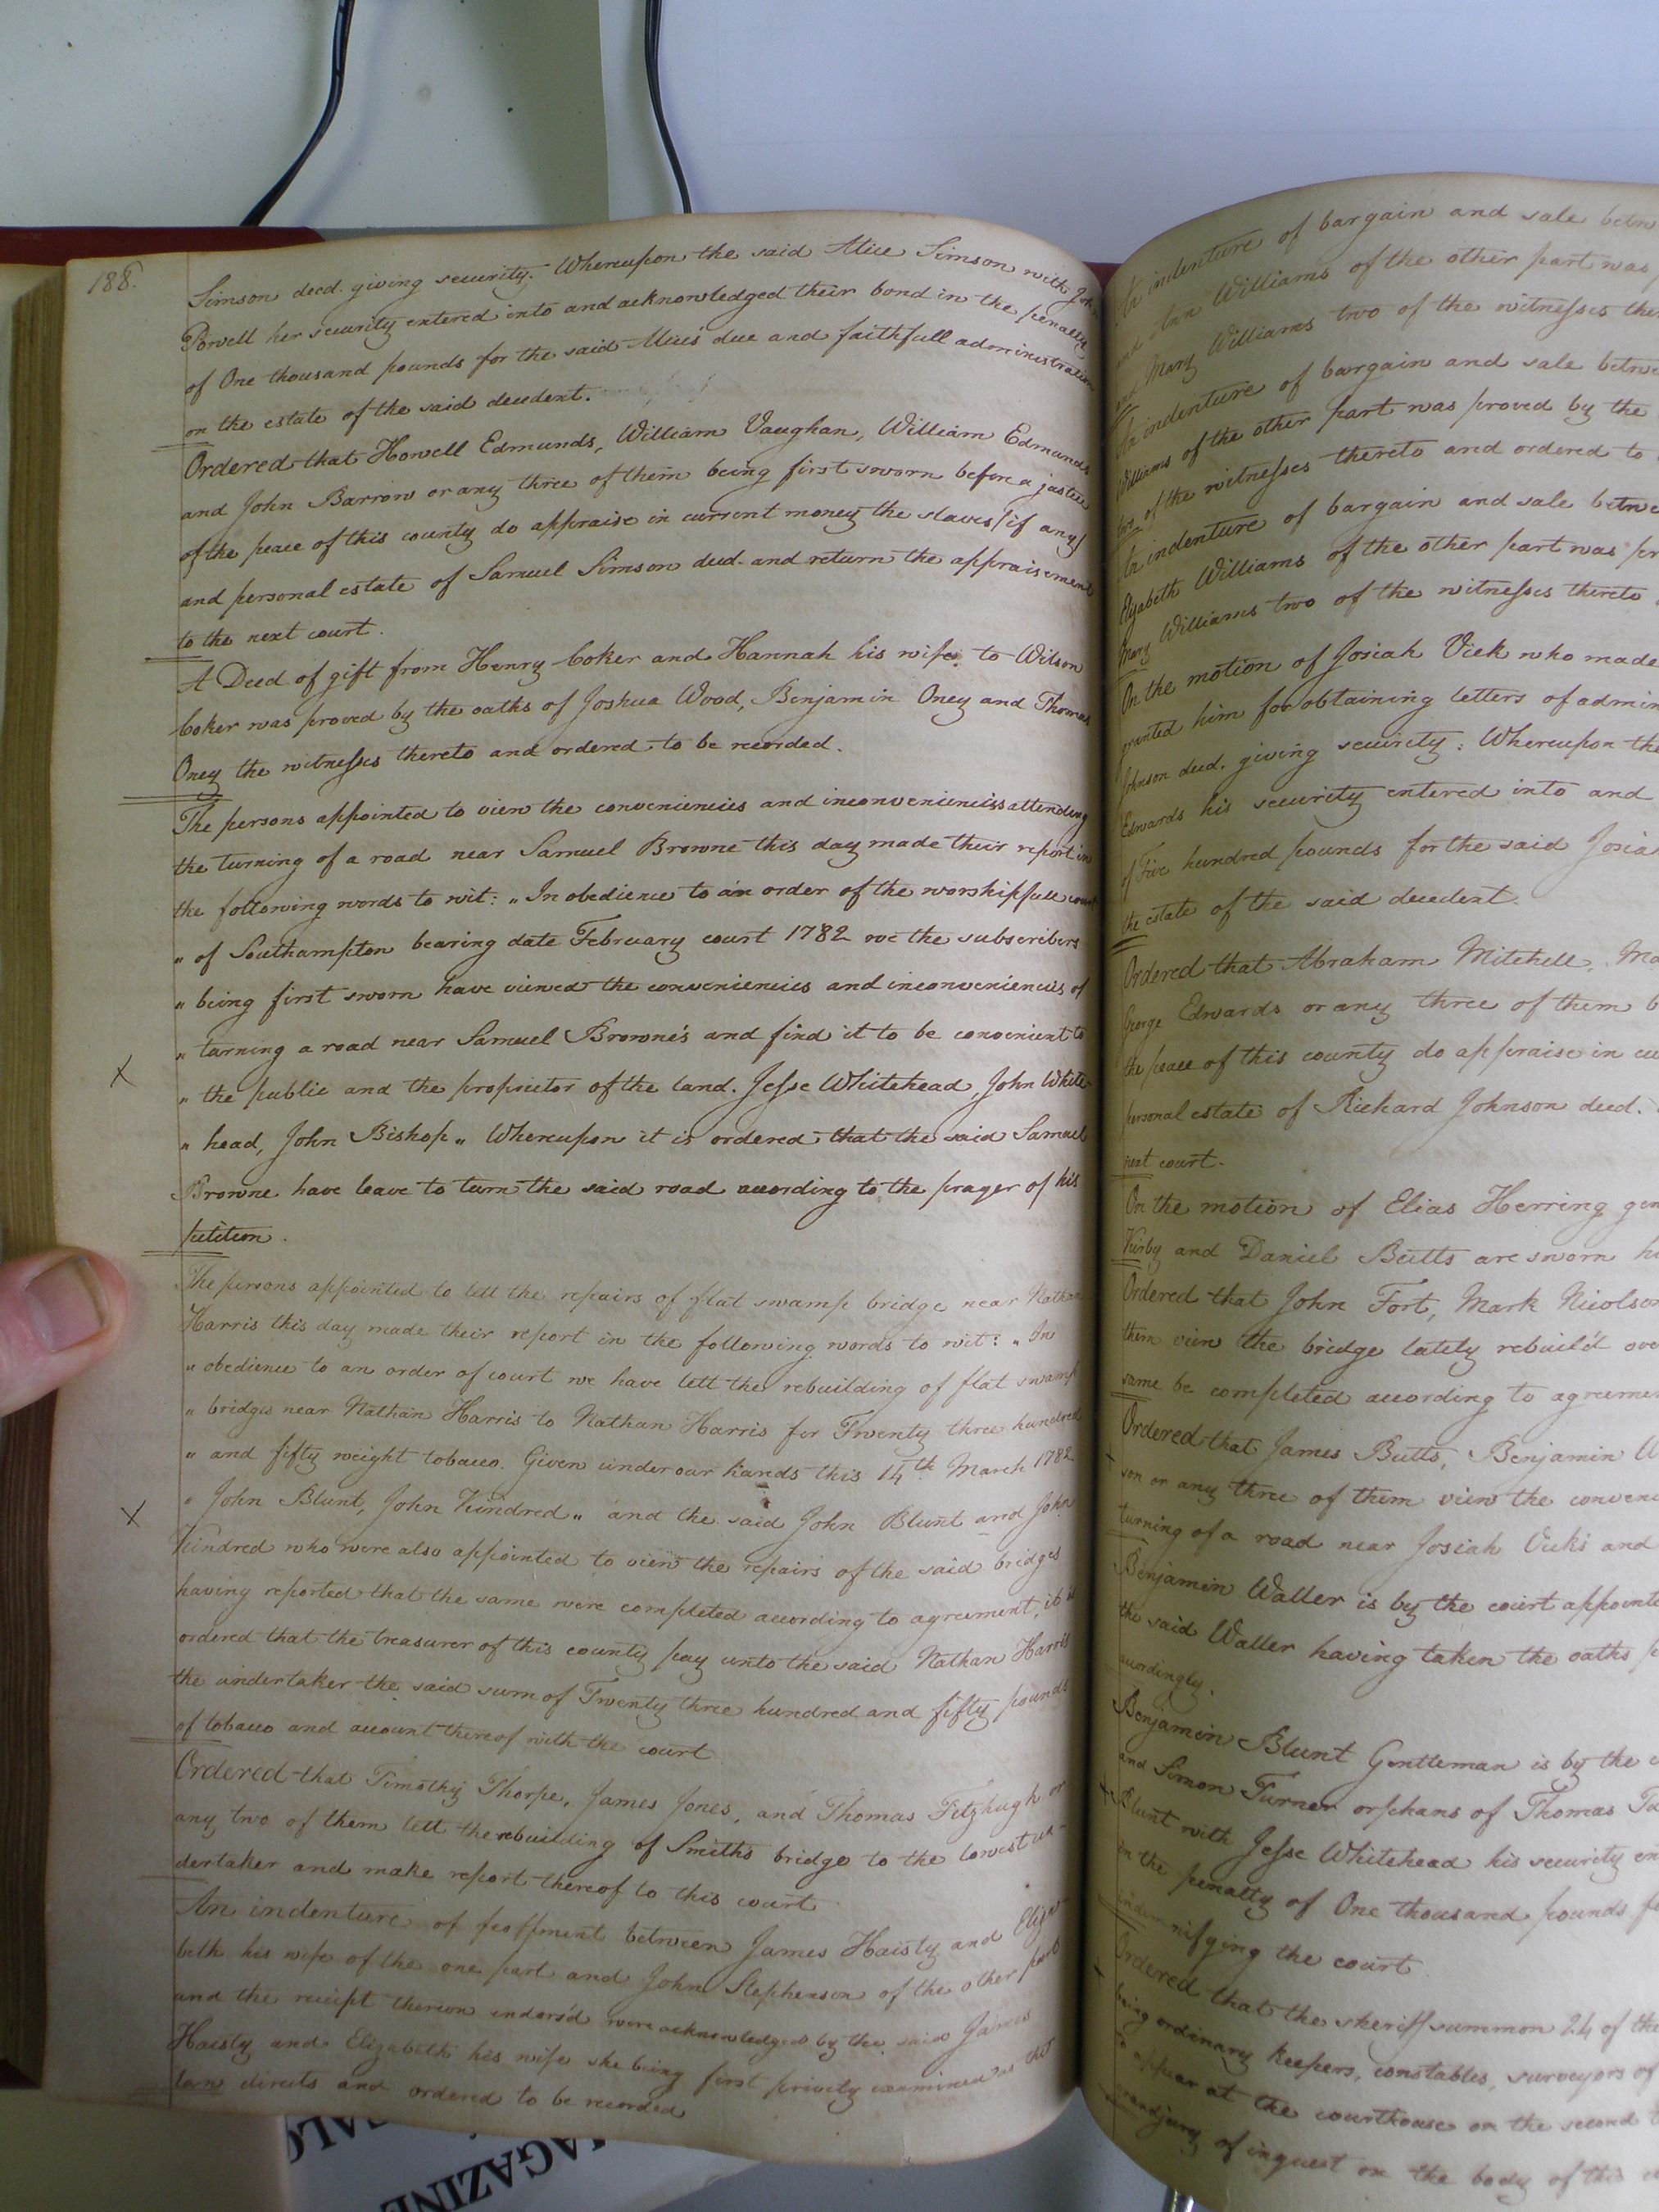 188.
Simson deced. giving security. Whereupon the said Alice Simson with John
Powell her security entered into and acknowledged their bond in the penalty
of One thousand pounds for the said Alice's due and faithfull administration
on the estate of the said decedent.
Ordered that Howell Edmunds, William Vaughan, William Edmunds
and John Barrow or any three of them being first sworn before a justice
of the peace of this county do appraise in current money the slaves (if any)
and personal estate of Samuel Simson deced. and return the appraisement
to the next court.
A Deed of gift from Henry Coker and Hannah his wife to Wilson
Coker was proved by the oaths of Joshua Wood, Benjamin Oney and Thomas
Oney the witnesses thereto and ordered to be recorded.
The persons appointed to view the conveniencies and inconveniencies attending
the turning of a road near Samuel Browne this day made their report in
the following words to wit: „ In obedience to an order of the worshipfull court
„ of Southampton bearing date February court 1782 we the subscribers
„ being first sworn have viewed the conveniencies and inconveniencies of
„ turning a road near Samuel Browne's and find it to be convenient to
„ the public and the proprietor of the land. Jesse Whitehead, John White-
„ head, John Bishop „ Whereupon it is ordered that the said Samuel
Browne have leave to turn the said road according to the prayer of his
petition.
The persons appointed to lett the repairs of flat swamp bridge near Nathan
Harris this day made their report in the following words to wit: „ In
„ obedience to an order of court we have lett the rebuilding of flat swamp
„ bridges near Nathan Harris to Nathan Harris for Twenty three hundred
„ and fifty weight tobacco. Given under our hands this 14th March 1782
„ John Blunt, John Kindred „ and the said John Blunt and John
Kindred who were also appointed to view the repairs of the said bridges
having reported that the same were completed according to agreement, it is
ordered that the treasurer of this county pay unto the said Nathan Harris
the undertaker the said sum of Twenty three hundred and fifty pounds
of tobacco and account thereof with the court
Ordered that Timothy Thorpe, James Jones, and Thomas Fitzhugh or
any two of them lett the rebuilding of Smiths bridge to the lowest un-
dertaker and make report thereof to this court
An indenture of feoffment between James Haisty and Eliza-
beth his wife of the one part and John Stephenson of the other part
and the receipt thereon indors'd were acknowledged by the said James
Haisty and Elizabeth his wife she being first privily examined as the
law directs and ordered to be recorded
An indenture of bargain and sale betw
and Ann Williams of the other part was
and Mary Williams two of the witnesses the
An indenture of bargain and sale betwe
Williams of the other part was proved by the
two of the witnesses thereto and ordered to
An indenture of bargain and sale betwe
Elizabeth Williams of the other part was pr
Mary Williams two of the witnesses thereto
On the motion of Josiah Vick who made
granted him for obtaining letters of admin
Johnson deced. giving security: Whereupon the
Edwards his security entered into and
of Five hundred pounds for the said Josia
the estate of the said decedent.
Ordered that Abraham Mitchell, Ma
George Edwards or any three of them b
the peace of this county do appraise in cu
personal estate of Richard Johnson deced.
next court.
On the motion of Elias Herring gen
Kirby and Daniel Butts are sworn hi
Ordered that John Fort, Mark Nicolson
them view the bridge lately rebuild ove
same be completed according to agreeme
Ordered that James Butts, Benjamin W
son or any three of them view the conveni
turning of a road near Josiah Vicks and
Benjamin Waller is by the court appointe
the said Waller having taken the oaths p
accordingly.
Benjamin Blunt Gentleman is by the c
and Simon Turner orphans of Thomas Tu
Blunt with Jesse Whitehead his security en
in the penalty of One thousand pounds fo
indemnifying the court
Ordered that the sheriff summon 24 of the
being ordinary keepers, constables, surveyors of
to appear at the courthouse on the second
grandjury of inquest on the body of this
MAGAZINE